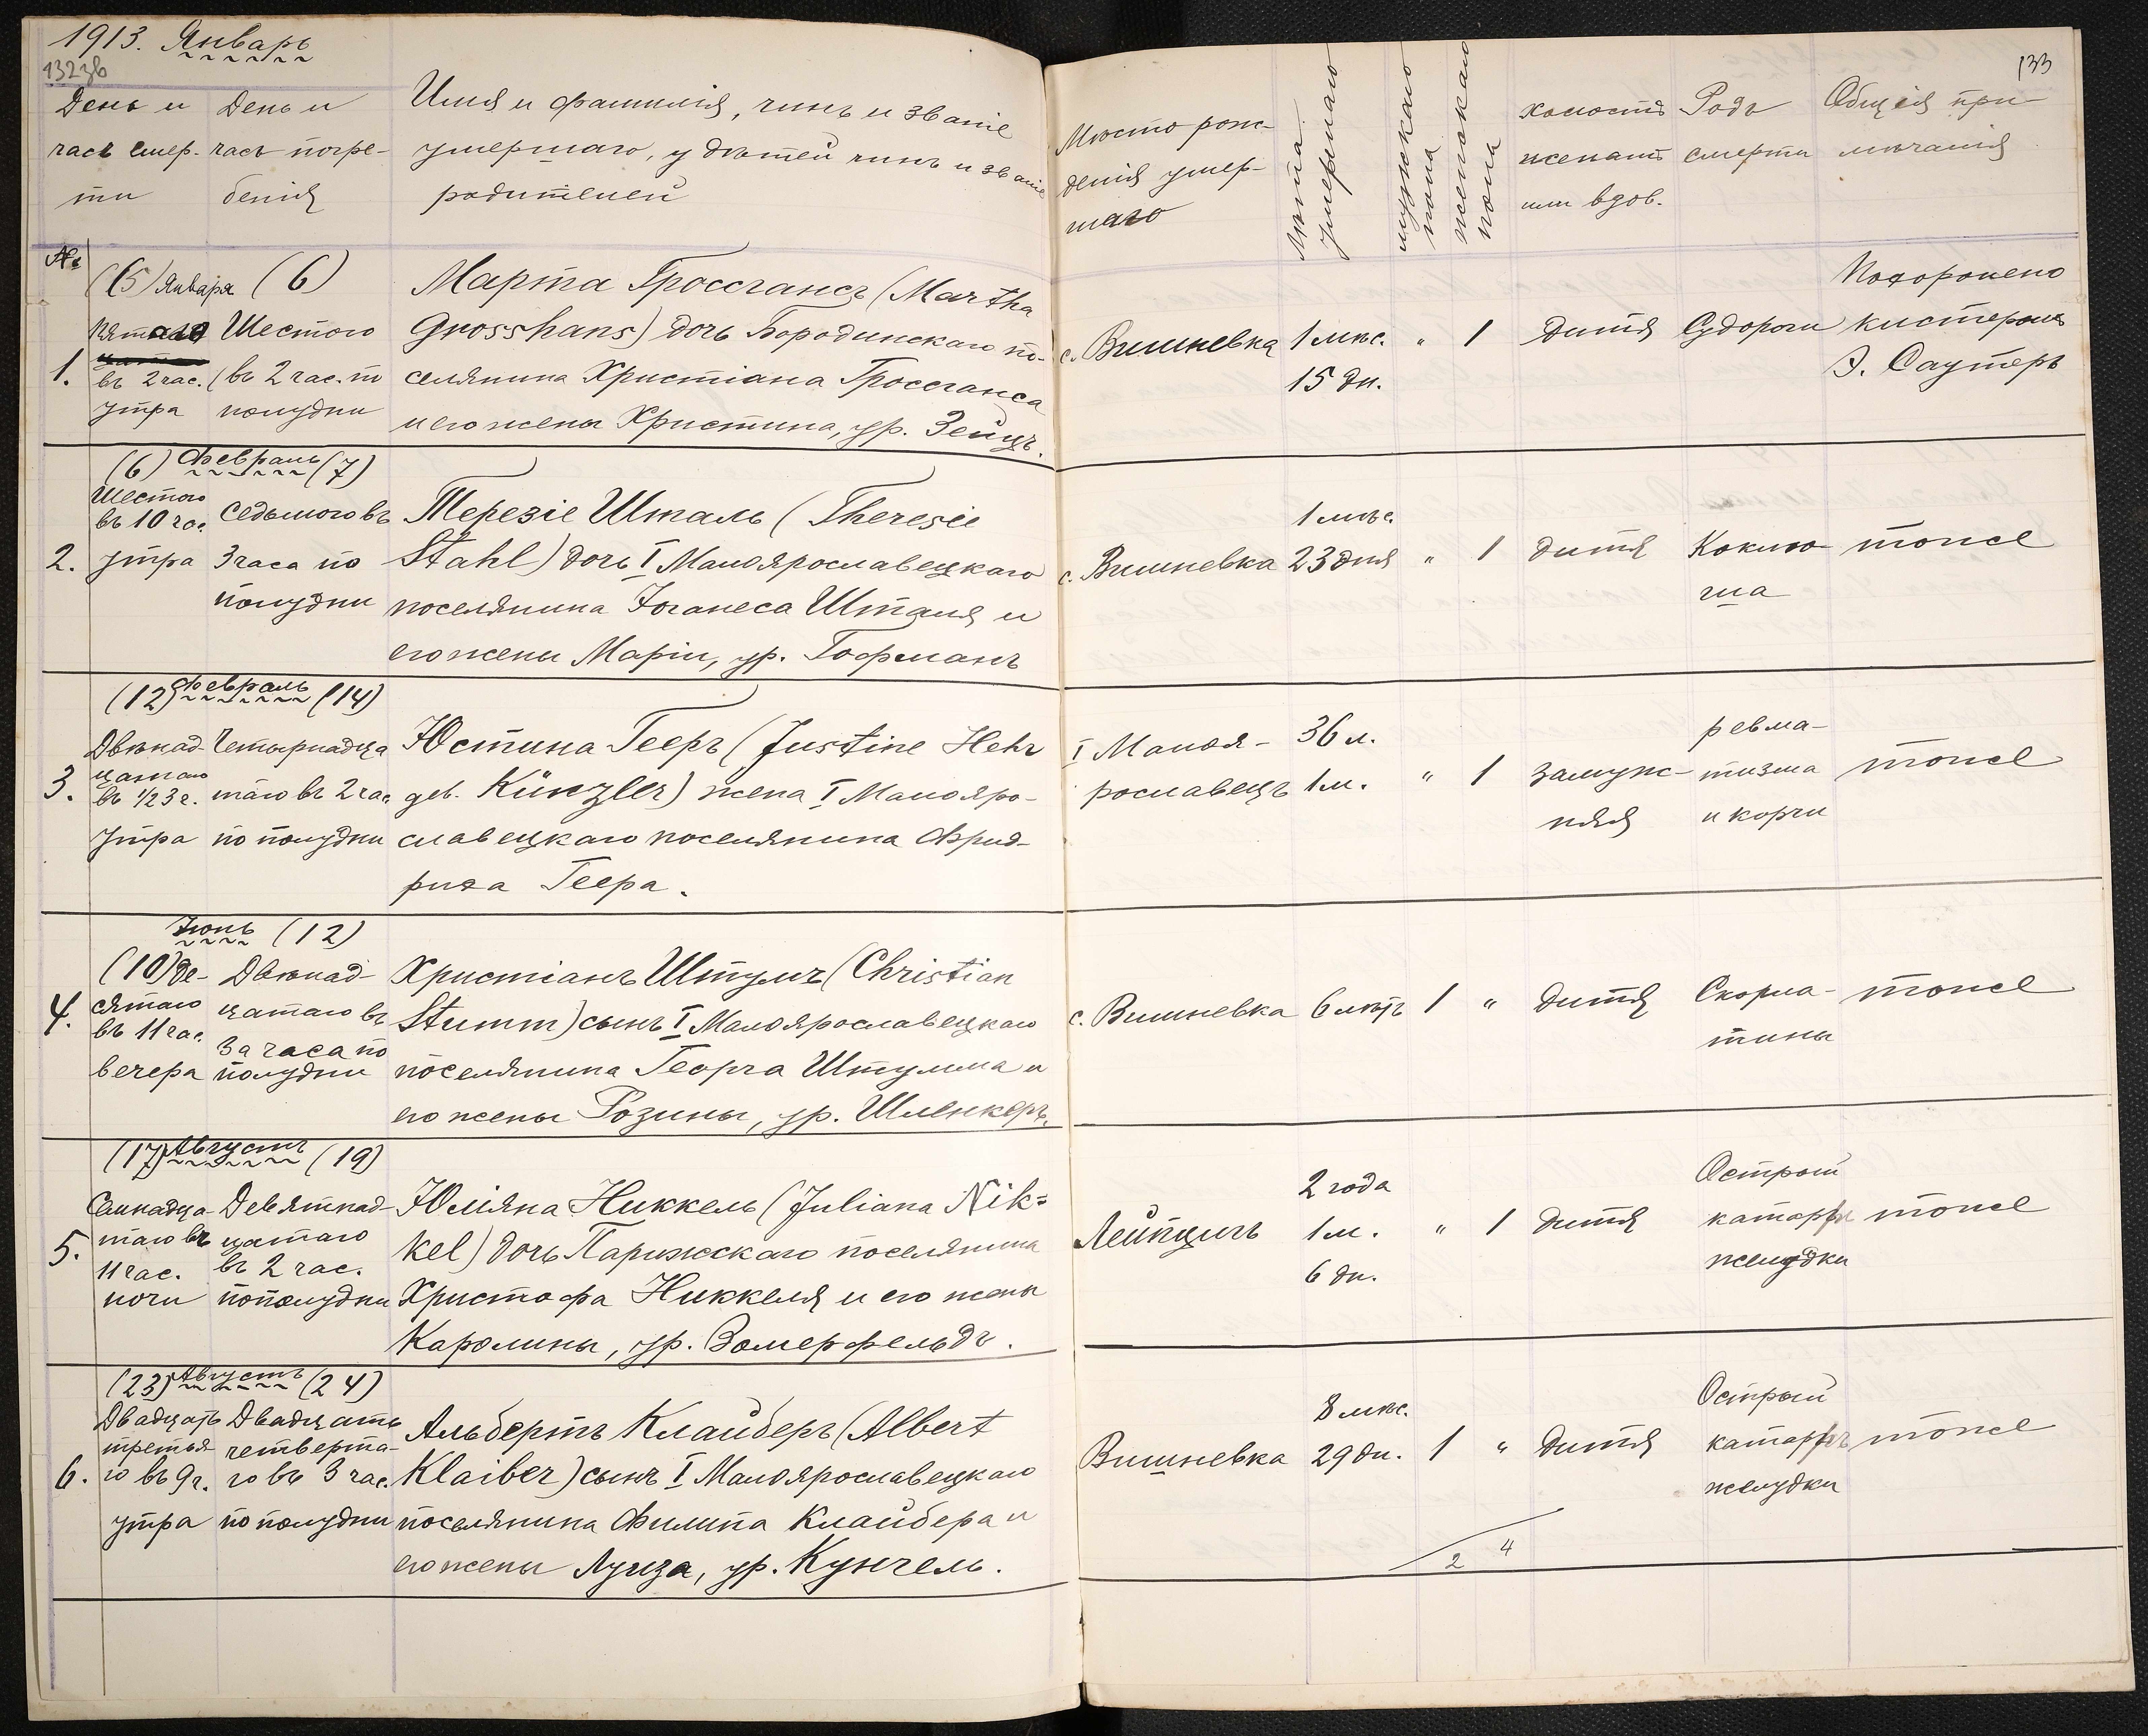 1913. Январь
132 зв
133
День и
час смер-
ти
День и
часъ погре-
бенія
Имя и фамилія, чинъ и званіе
умершаго, у дѣтей чинъ и званіе
родителей
Мѣсто рож-
денія умер-
шаго
Лѣта
умершаго
мужскаго
пола
женскаго
пола
холостъ
женатъ
или вдов.
Родъ
смерти
Общія при-
мѣчанія
№
1.
(5) Января (6)
Пятаго
въ 2 час.
утра
Шестого
въ 2 час. по
полудни
Марта Гроссгансъ (Martha
Grosshans) дочь Бородинскаго по-
селянина Христіана Гроссганса
и его жены Христина, ур. Зейцъ.
с. Вишневка
1 мѣс.
15 дн.
„
1
дитя
Судороги
Похоронено
кистеромъ
Э. Саутеръ
2.
(6) Февраль (7)
Шестого
въ 10 час.
утра
Седьмого въ
3 часа по
полудни
Терезіе Шталь (Theresie
Stahl) дочь I Малоярославецкаго
поселянина Іоганеса Шталя и
его жены Маріи, ур. Гофманъ
с. Вишневка
1 мѣс.
23 дня
„
1
дитя
Коклю-
ша
тоже
3.
(12) Февраль (14)
Двѣнад-
цатаго
въ 1/2 3 ч.
утра
Четырнадца
таго въ 2 час.
по полудни
Юстина Гееръ (Justine Hehr
geb. Künzler) жена I Малояро-
славецкаго поселянина Фрид-
риха Геера.
I Малоя-
рославецъ
36 л.
1 м.
„
1
замуж-
няя
ревма-
тизма
и корчи
тоже
4.
Іюнь (12)
(10) Де-
сятаго
въ 11 час.
вечера
Двѣнад-
цатаго въ
3 часа по
полудни
Христіанъ Штумъ (Christian
Stumm) сынъ I Малоярославецкаго
поселянина Георга Штумма и
его жены Розины, ур. Шленкеръ.
с. Вишневка
6 лѣтъ
1
„
дитя
Скорла-
тины
тоже
5.
(17) Августъ (19)
Семнадца-
таго въ
11 час.
ночи
Девятнад-
цатаго
въ 2 час.
по полудни
Юліяна Никкель (Juliana Nik=
kel) дочь Парижскаго поселянина
Христофа Никкеля и его жены
Каролины, ур. Зомерфельдъ.
Лейпцигъ
2 года
1 м.
6 дн.
„
1
дитя
Острый
катарръ
желудки
тоже
6.
(23) Августъ (24)
Двадцать
третья-
го въ 9 ч.
утра
Двадцать
четверта-
го въ 3 час.
по полудни
Альбертъ Клайберъ (Albert
Klaiber) сынъ I Малоярославецкаго
поселянина Филипа Клайбера и
его жены Луиза, ур. Кунчель.
Вишневка
8 мѣс.
29 дн.
1
„
дитя
Острый
катарръ
желудки
тоже
2 4